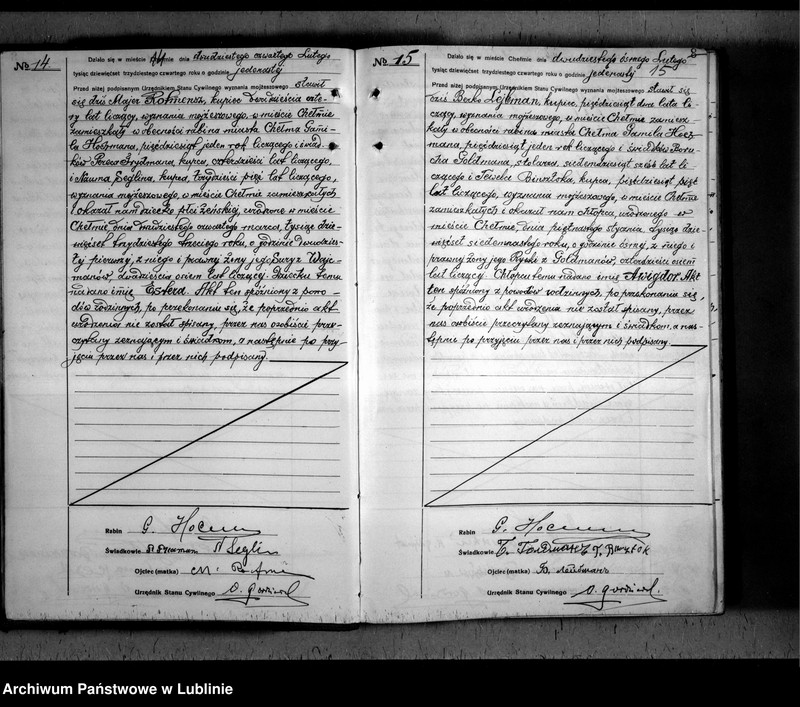 № 14
Działo się w mieście Chełmie dnia dwudziestego czwartego Lutego
tysiąc dziewięćset trzydziestego czwartego roku o godzinie jedenastej
Przed niżej podpisanym Urzędnikiem Stanu Cywilnego wyznania mojżeszowego stawił
się dziś Major kupiec, dwadzieścia czte-
ry lat liczący, wyznania mojżeszowego, w mieście Chełmie
zamieszkały w obecności rabina miasta Chełma Gami-
la Hocmana, pięćdziesiąt jeden rok liczącego i świad-
ków Frydmana, kupca, czterdzieści lat liczącego,
i Seglina, kupca, trzydzieści pięć lat liczącego,
wyznania mojżeszowego, w mieście Chełmie zamieszkałych
i okazał nam dziecko płci żeńskiej, urodzone w mieście
Chełmie, dnia dwudziestego czwartego marca, tysiąc dzie-
więćset trzydziestego trzeciego roku, o godzinie dwudzies-
tej pierwszej, z niego i prawnej żony jego Sury z Waj-
manów, dwadzieścia osiem lat liczącej. Dziecku temu
nadano imię Estera. Akt ten spóźniony z powo-
dów rodzinnych, po przekonaniu się, że poprzednio akt
urodzenia nie został spisany, przez nas osobiście prze-
czytany zeznającym i świadkom, a następnie po przy-
jęciu przez nas i przez nich podpisany.
Rabin G. Hocman
Świadkowie Seglin
Ojciec (matka)
Urzędnik Stanu Cywilnego
8
№ 15
Działo się w mieście Chełmie dnia dwudziestego ósmego Lutego
tysiąc dziewięćset trzydziestego czwartego roku o godzinie jedenastej 15
Przed niżej podpisanym Urzędnikiem Stanu Cywilnego wyznania mojżeszowego stawił się
dziś Berko Lejbman, kupiec, pięćdziesiąt dwa lata li-
czący, wyznania mojżeszowego, w mieście Chełmie zamiesz-
kały w obecności rabina miasta Chełma Gamila Hoc-
mana, pięćdziesiąt jeden rok liczącego i świadków Boru-
cha Goldmana, stolarza, siedemdziesiąt sześć lat li-
czącego i Binsztoka, kupca, pięćdziesiąt pięć
lat liczącego, wyznania mojżeszowego, w mieście Chełmie
zamieszkałych i okazał nam chłopca, urodzonego w
mieście Chełmie, dnia piętnastego stycznia tysiąc dzie-
więćset siedemnastego roku, o godzinie ósmej, z niego i
prawnej żony jego Rywki z Goldmanów, czterdzieści osiem
lat liczącej. Chłopcu temu nadano imię Awigdor. Akt
ten spóźniony z powodów rodzinnych, po przekonaniu się,
że poprzednio akt urodzenia nie został spisany, przez
nas osobiście przeczytany zeznającym i świadkom, a nas-
tępnie po przyjęciu przez nas i przez nich podpisany.
Rabin G. Hocman
Świadkowie
Ojciec (matka)
Urzędnik Stanu Cywilnego
Archiwum Państwowe w Lublinie